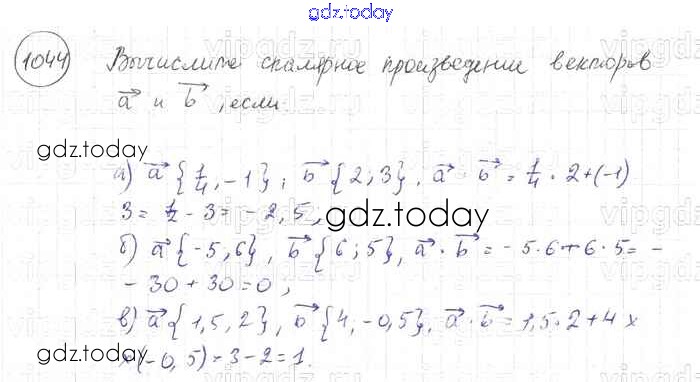 gdz.today
1044 Вычислите скалярное произведение векторов
a и b, если
gdz.today
а) a {1/4, -1}; b {2; 3}, a · b = 1/4 · 2 + (-1)
3 = 1/2 - 3 = - 2,5,
gdz.today
б) a {-5, 6}, b {6; 5}, a · b = - 5 · 6 + 6 · 5 = -
- 30 + 30 = 0;
в) a {1,5, 2}, b {4, -0,5}, a · b = 1,5 · 2 + 4 x
x (-0,5) = 3 - 2 = 1.
gdz.today